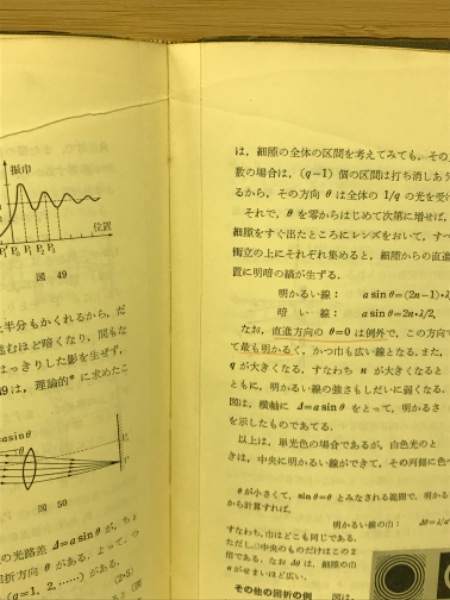 振巾
位置
P₁ P₂ P₃
図 49
半分もかくれるから，だ
進むほど暗くなり，間もな
はっきりした影を生ぜず，
49は，理論的*に求めたこ
asinθ
P
図 50
の光路差 Δ=a sin θ が，ちょ
回折方向 θ がある．よって，つ
(q=1，2，……) がある．
(2·5)
は，細隙の全体の区間を考えてみても，その
数の場合は，(q−1) 個の区間は打ち消しあう
るから，その方向 θ は全体の 1/q の光を受け
それで，θ を零からはじめて次第に増せば，
細隙をすぐ出たところにレンズをおいて，すべ
衝立の上にそれぞれ集めると，細隙からの直進
置に明暗の縞が生ずる．
明かるい線： a sin θ=(2n−1)·λ/2,
暗 い 線： a sin θ=2n·λ/2,
なお，直進方向の θ=0 は例外で，この方向で
て最も明かるく，かつ巾も広い線となる．また，
q が大きくなる，すなわち n が大きくなると
ともに，明かるい線の強さもしだいに弱くなる．
図は，横軸に Δ=a sin θ をとって，明かるさ
を示したものである．
以上は，単光色の場合であるが，白色光のと
きは，中央に明かるい線ができて，その両側に色
θ が小さくて，sin θ=θ とみなされる範囲で，明かる
から計算すれば，
明かるい線の巾： Δθ=λ/a
すなわち，巾はどこも同じである．
ただし，中央のものだけはこの2
倍である．なお Δθ は，細隙の巾
a がせまいほど広い．
その他の回折の例 図は，